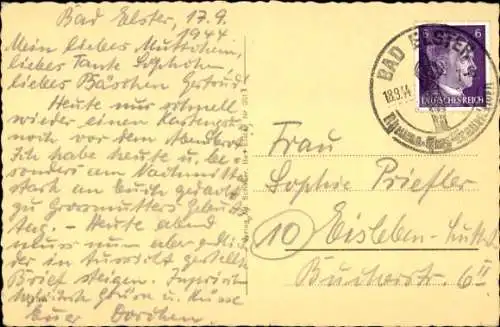 Bad Elster, 17.9.
1944.
Mein liebes Muttchen,
liebe Tante
liebes Bäschen Gertrud!
Heute nur schnell
wieder einen Kartengruß
noch vor dem Abendbrot.
Ich habe heute u. be-
sonders am Nachmittag
stark an euch gedacht
zu Grossmutters Geburts-
tag. - Heute abend
muss nun aber endlich
der in Aussicht gestellte
Brief steigen. Inzwischen
Grüsse u. Küsse
Euer Dorchen.
BAD ELSTER
18.9.44
6 6
DEUTSCHES REICH
Frau
Sophie Priefler
(10) Eisleben-Lutherst.
Bucherstr. 6 II